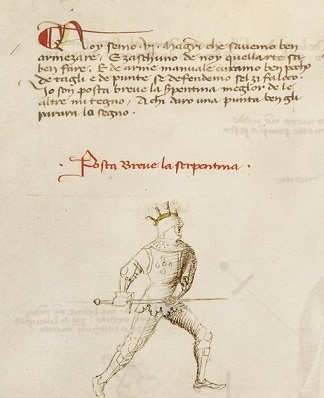 Noy semo .vi. Magistri che savemo ben
armezare. E zaschuno de noy quellarte sa
ben fare. E de arme manuale curamo ben pocho
de tagli e de punte se defendemo sel zi fa loco.
Io son posta breve la serpentina meglor de le
altre mi tegno. A chi daro una punta ben gli
parara lo segno.
· Posta Breve la serpentina ·